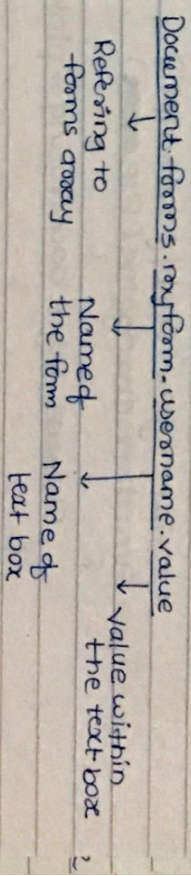 Document.forms.myform.username.value
Refering to
forms array
Name of
the form
Name of
text box
value within
the text box